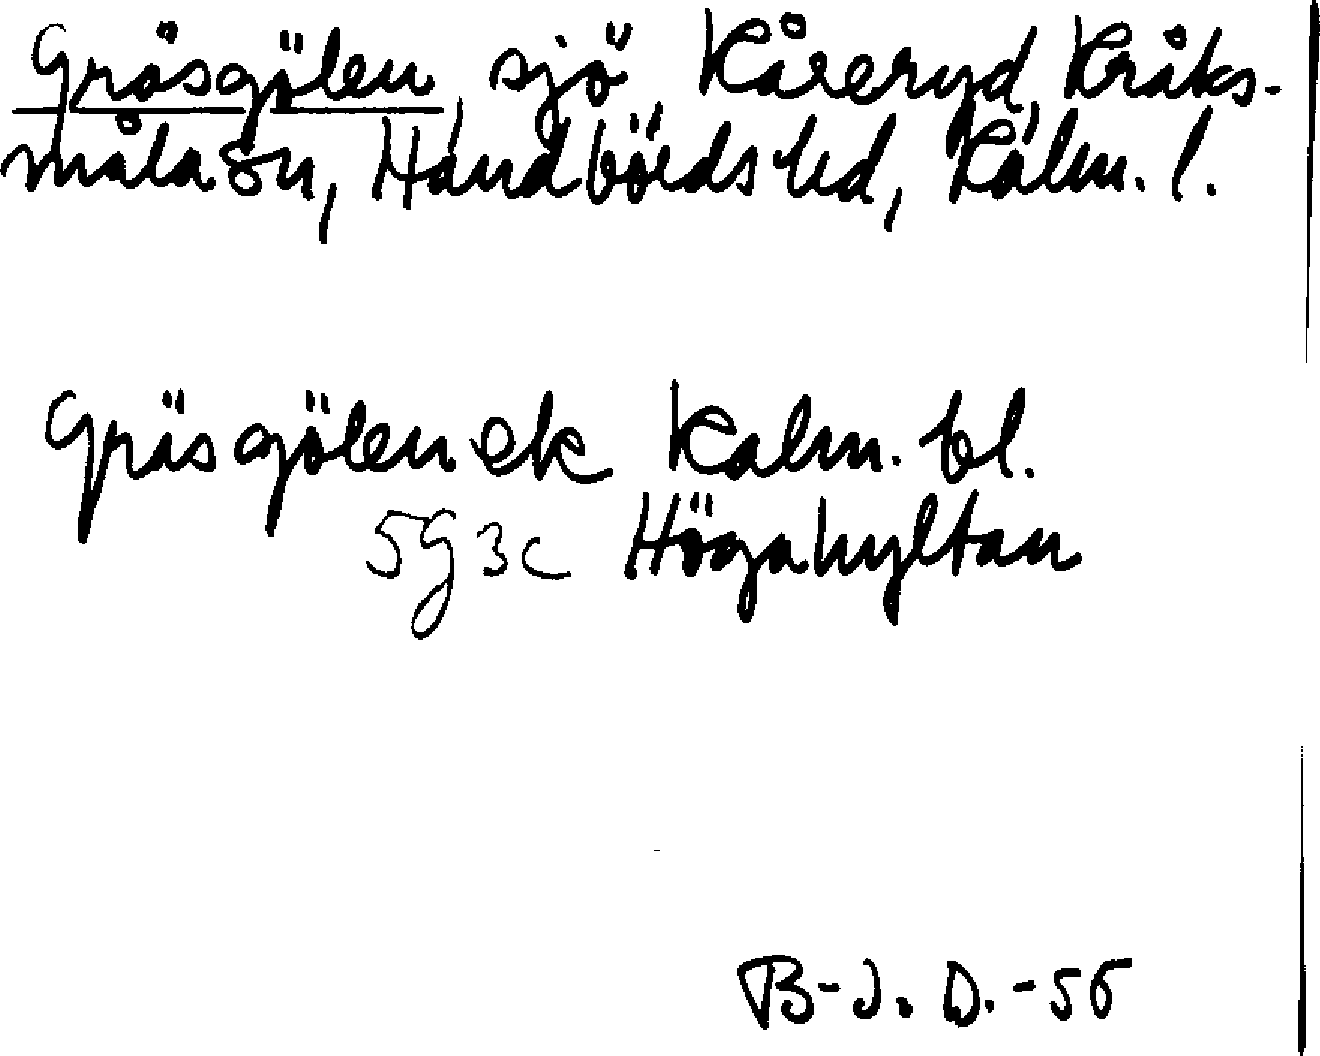 Gräsgölen, sjö, Kåreryd, Kråks-
måla sn, Handbörds hd, Kalm. l.
Gräsgölen ek Kalm. bl.
5g 3c Högahyltan
B-J. D. -56